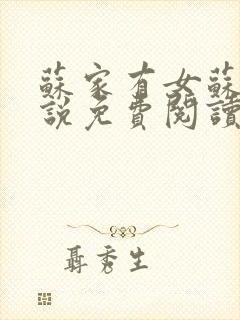 蘇家有女蘇
說免費閱讀
聶秀生